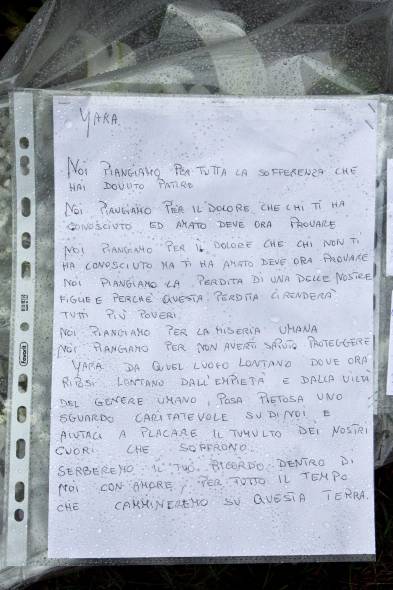 YARA.
NOI PIANGIAMO PER TUTTA LA SOFFERENZA CHE
HAI DOVUTO PATIRE
NOI PIANGIAMO PER IL DOLORE CHE CHI TI HA
CONOSCIUTO ED AMATO DEVE ORA PROVARE
NOI PIANGIAMO PER IL DOLORE CHE CHI NON TI
HA CONOSCIUTO MA TI HA AMATO DEVE ORA PROVARE
NOI PIANGIAMO LA PERDITA DI UNA DELLE NOSTRE
FIGLIE PERCHÉ QUESTA PERDITA CI RENDERÀ
TUTTI PIÙ POVERI.
NOI PIANGIAMO PER LA MISERIA UMANA
NOI PIANGIAMO PER NON AVERTI SAPUTO PROTEGGERE
YARA DA QUEL LUOGO LONTANO DOVE ORA
RIPOSI LONTANO DALL'EMPIETÀ E DALLA VILTÀ
DEL GENERE UMANO, POSA PIETOSA UNO
SGUARDO CARITATEVOLE SU DI NOI E
AIUTACI A PLACARE IL TUMULTO DEI NOSTRI
CUORI CHE SOFFRONO.
SERBEREMO IL TUO RICORDO DENTRO DI
NOI CON AMORE PER TUTTO IL TEMPO
CHE CAMMINEREMO SU QUESTA TERRA.
favorit